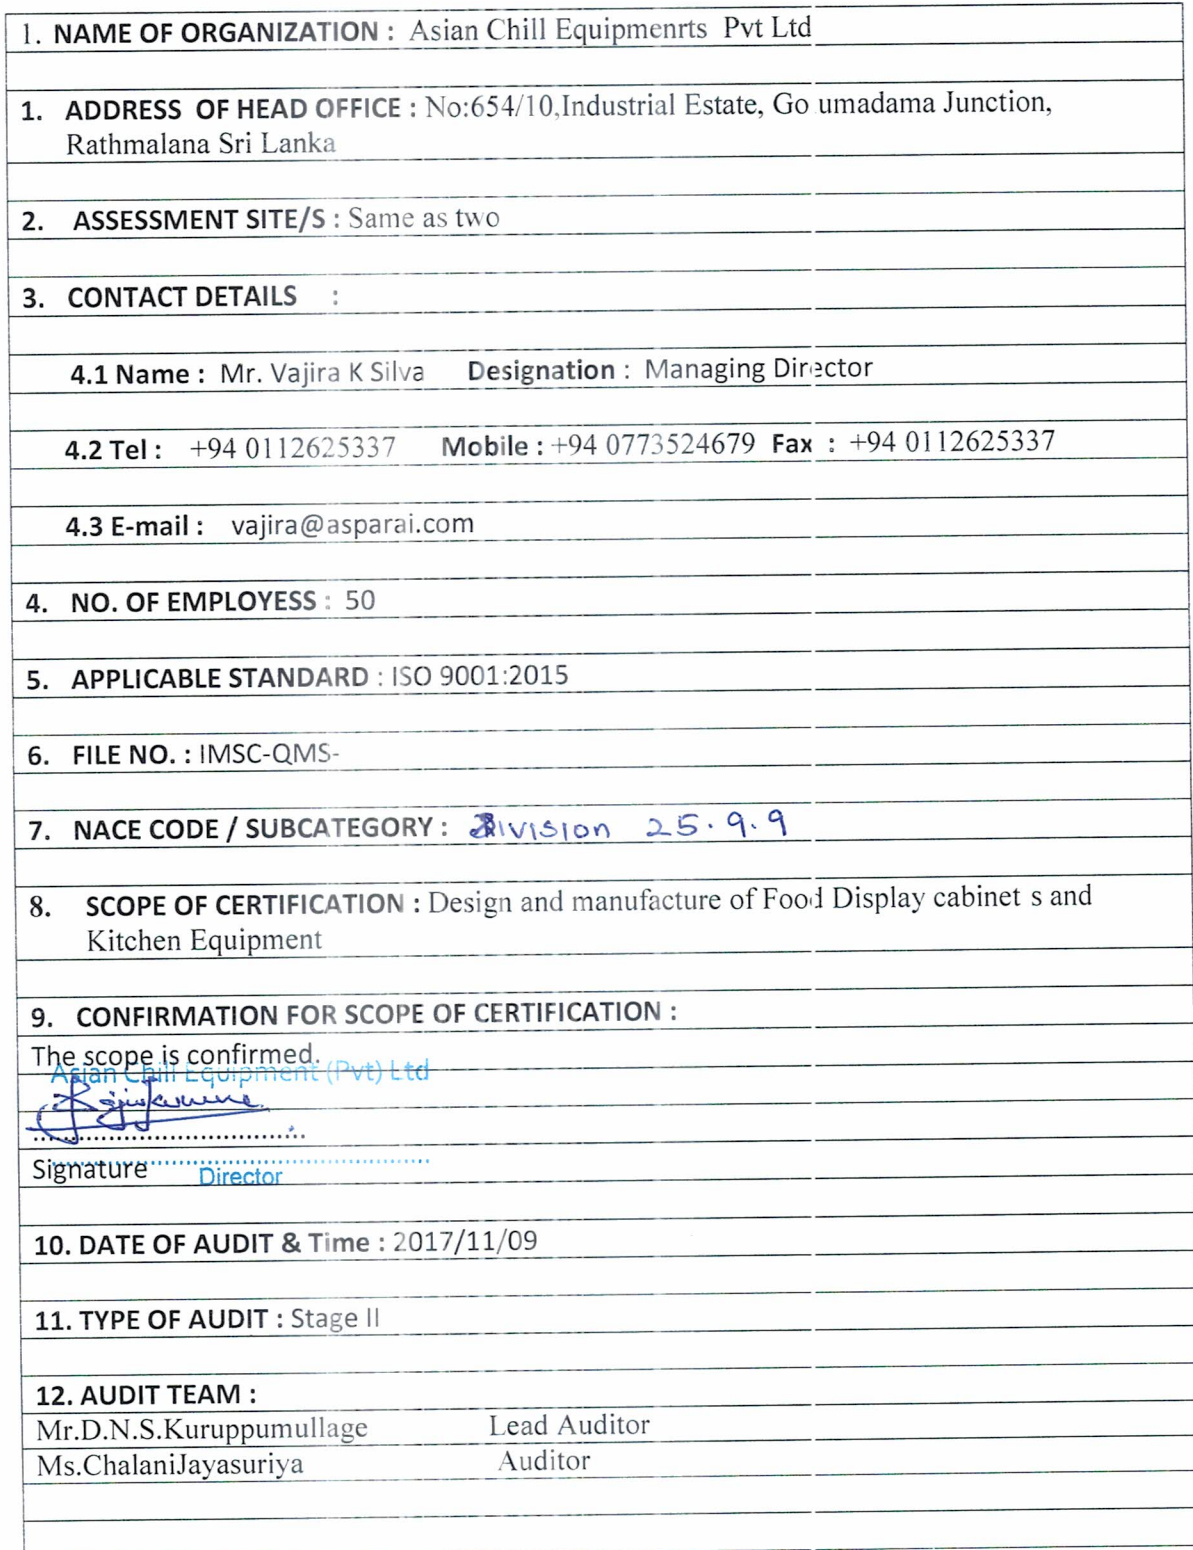 1. NAME OF ORGANIZATION : Asian Chill Equipmenrts Pvt Ltd
1. ADDRESS OF HEAD OFFICE : No:654/10,Industrial Estate, Go umadama Junction,
Rathmalana Sri Lanka
2. ASSESSMENT SITE/S : Same as two
3. CONTACT DETAILS :
4.1 Name : Mr. Vajira K Silva Designation : Managing Director
4.2 Tel : +94 0112625337 Mobile : +94 0773524679 Fax : +94 0112625337
4.3 E-mail : vajira@asparai.com
4. NO. OF EMPLOYESS : 50
5. APPLICABLE STANDARD : ISO 9001:2015
6. FILE NO. : IMSC-QMS-
7. NACE CODE / SUBCATEGORY : Division 25.9.9
8. SCOPE OF CERTIFICATION : Design and manufacture of Food Display cabinet s and
Kitchen Equipment
9. CONFIRMATION FOR SCOPE OF CERTIFICATION :
The scope is confirmed.
Asian Chill Equipment (Pvt) Ltd
Signature Director
10. DATE OF AUDIT & Time : 2017/11/09
11. TYPE OF AUDIT : Stage II
12. AUDIT TEAM :
Mr.D.N.S.Kuruppumullage Lead Auditor
Ms.ChalaniJayasuriya Auditor